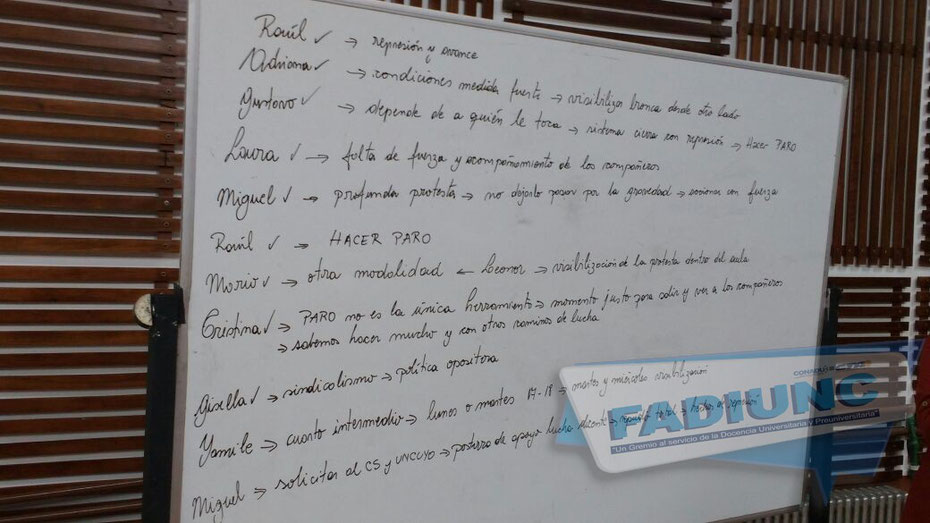 Raúl ✓ → represión y avance
Adriana ✓ → condiciones medida fuerte → visibilizar bronca desde otro lado
Gustavo ✓ → depende de a quién le toca → sistema cierra con represión → Hacer PARO
Laura ✓ → falta de fuerza y acompañamiento de los compañeros
Miguel ✓ → profunda protesta → no dejarlo pasar por la gravedad → accionar con fuerza
Raúl ✓ → HACER PARO
Mario ✓ → otra modalidad ← Leonor → visibilización de la protesta dentro del aula
Cristina ✓ → PARO no es la única herramienta → momento justo para salir y ver a los compañeros
→ sabemos hacer mucho y con otros caminos de lucha
Gisella ✓ → sindicalismo → política opositora
Yamile → cuarto intermedio → lunes o martes 17-18 → martes y miércoles visibilización
Miguel → solicitar al CS y UNCUYO → postura de apoyo lucha docente → repudio total → hechos de represión
FADIUNC
"Un Gremio al servicio de la Docencia Universitaria y Preuniversitaria"